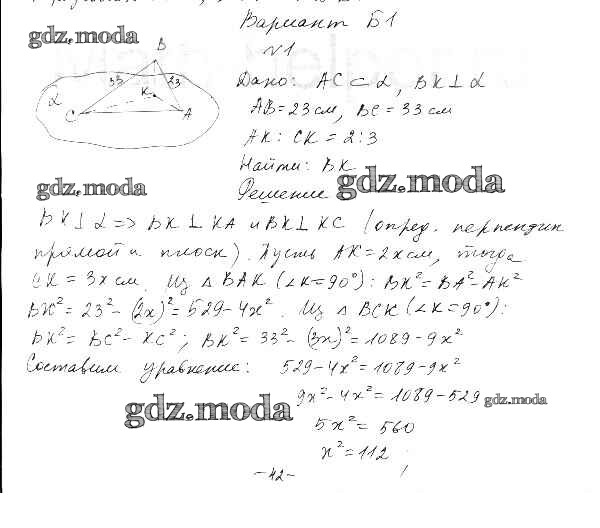 Вариант Б1
gdz.moda
№1
B
33
23
K
α
C
A
Дано: AC ⊂ α, BK ⊥ α
AB = 23 см, BC = 33 см
AK : CK = 2 : 3
Найти: BK
gdz.moda
gdz.moda
Решение
BK ⊥ α => BK ⊥ KA и BK ⊥ KC (опред. перпендик
прямой и плоск). Пусть AK = 2x см, тогда
CK = 3x см. Из △ BAK (∠K = 90°): BK² = BA² - AK²
BK² = 23² - (2x)² = 529 - 4x². Из △ BCK (∠K = 90°):
BK² = BC² - KC²; BK² = 33² - (3x)² = 1089 - 9x²
Составим уравнение: 529 - 4x² = 1089 - 9x²
9x² - 4x² = 1089 - 529
gdz.moda
gdz.moda
5x² = 560
x² = 112
- 42 -